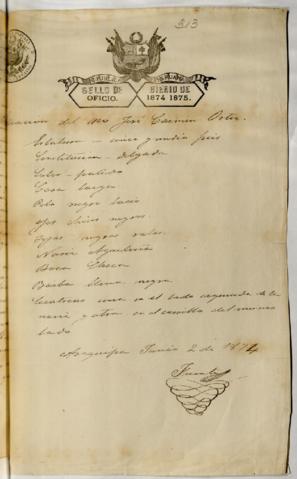 313
SELLO DE OFICIO.
BIENIO DE 1874 1875.
del reo José Carmen
Estatura – cinco y media pies
Constitucion – delgada
Color – palido
Cara larga
Pelo negro lacio
Ojos chicos negros
negras ralas
Nariz Aguileña
Boca Chica
Barba negra
Cicatrices una en el lado izquierdo de la
nariz y otra en el del mismo
lado
Arequipa Junio 2 de 1874